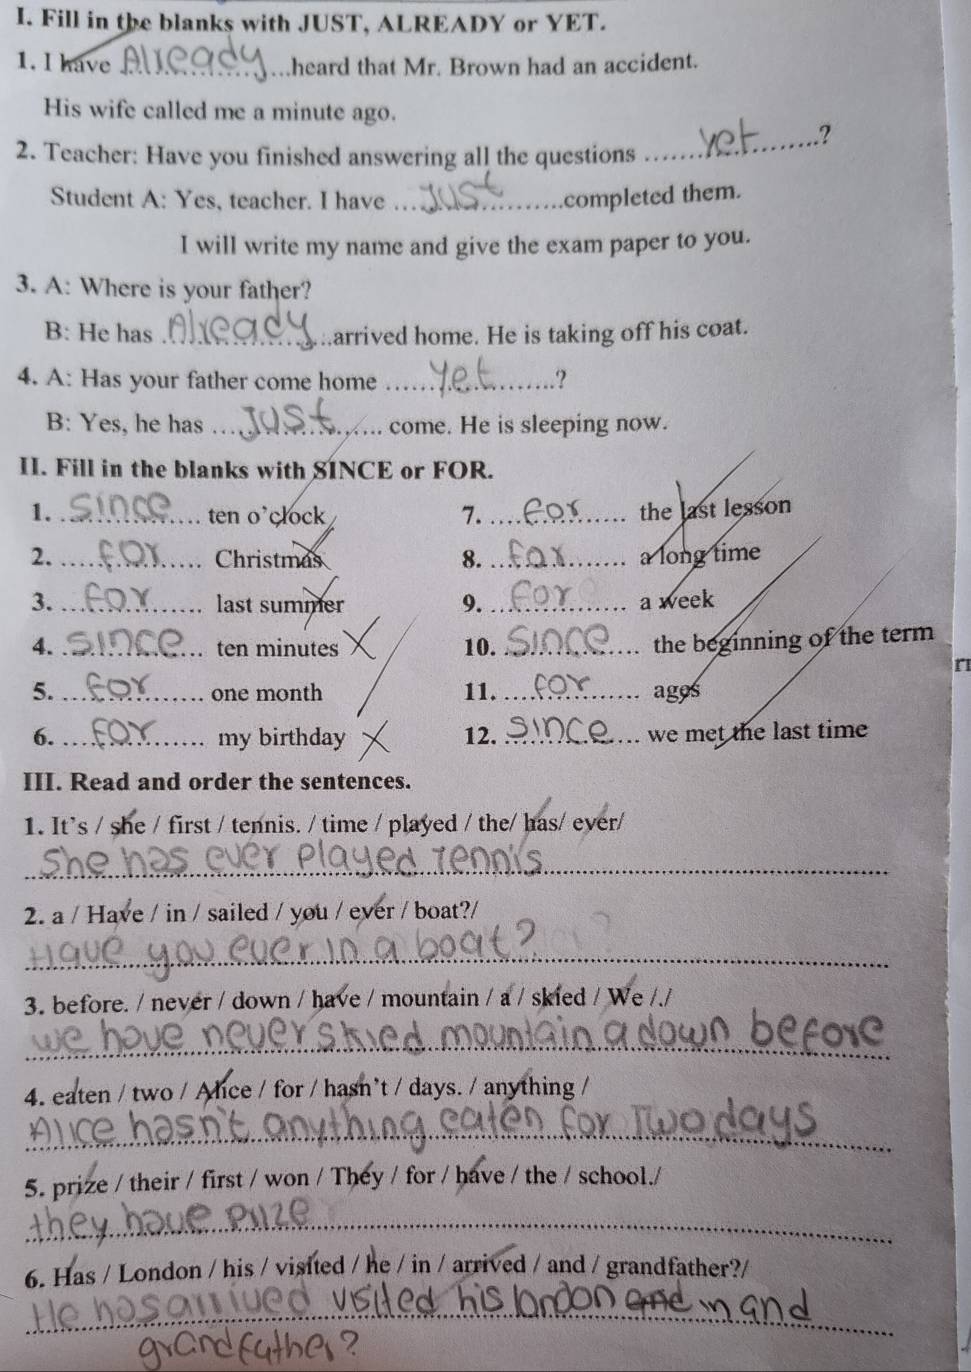 I. Fill in the blanks with JUST, ALREADY or YET.
1. I have Already heard that Mr. Brown had an accident.
His wife called me a minute ago.
2. Teacher: Have you finished answering all the questions yet ?
Student A: Yes, teacher. I have Just completed them.
I will write my name and give the exam paper to you.
3. A: Where is your father?
B: He has Already arrived home. He is taking off his coat.
4. A: Has your father come home yet ?
B: Yes, he has Just come. He is sleeping now.
II. Fill in the blanks with SINCE or FOR.
1. since ten o'clock 7. For the last lesson
2. for Christmas 8. for a long time
3. for last summer 9. for a week
4. since ten minutes 10. since the beginning of the term
5. for one month 11. for ages
6. for my birthday 12. since we met the last time
III. Read and order the sentences.
1. It's / she / first / tennis. / time / played / the/ has/ ever/
She has ever played Tennis
2. a / Have / in / sailed / you / ever / boat?/
Have you ever in a boat?
3. before. / never / down / have / mountain / a / skied / We /./
we have never skied mountain a down before
4. eaten / two / Alice / for / hasn't / days. / anything /
Alice hasn't anything eaten for Two days
5. prize / their / first / won / They / for / have / the / school./
they have prize
6. Has / London / his / visited / he / in / arrived / and / grandfather?/
He has arrived visited his london and in and
grandfather?